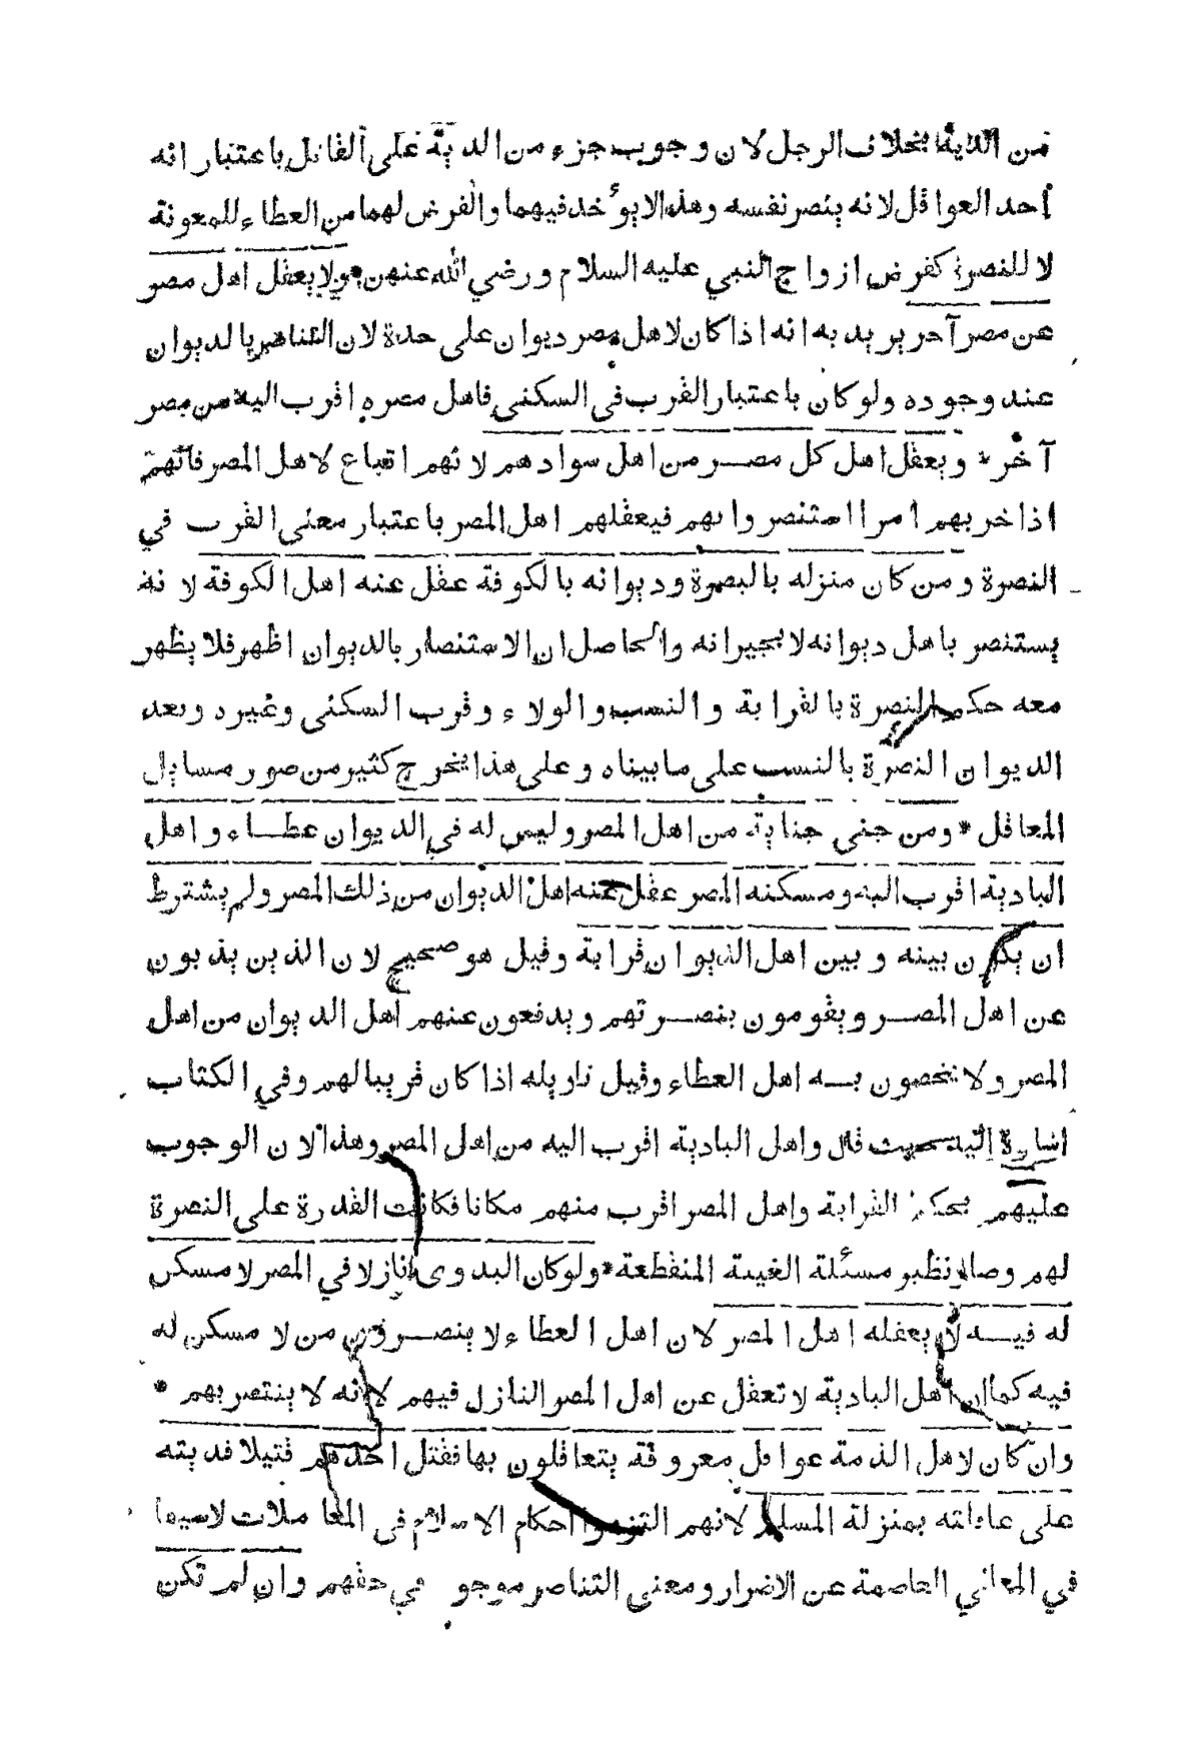 من الدية بخلاف الرجل لان وجوب جزء من الدية على القاتل باعتبار انه
احد العواقل لانه ينصر نفسه وهذا لا يؤخذ فيهما والفرض لهما من العطاء للمعونة
لا للنصرة كفرض ازواج النبي عليه السلام ورضي الله عنهن * ولا يعقل اهل مصر
عن مصر آخر يريد به انه اذا كان لاهل مصر ديوان على حدة لان التناصر بالديوان
عند وجوده ولو كان باعتبار القرب في السكنى فاهل مصره اقرب اليه من مصر
آخر * ويعقل اهل كل مصر من اهل سوادهم لانهم اتباع لاهل المصر فانهم
اذا حزبهم امر استنصروا بهم فيعقلهم اهل المصر باعتبار معنى القرب في
النصرة ومن كان منزله بالبصرة وديوانه بالكوفة عقل عنه اهل الكوفة لانه
يستنصر باهل ديوانه لا بجيرانه والحاصل ان الاستنصار بالديوان اظهر فلا يظهر
معه حكم النصرة بالقرابة والنسب والولاء وقرب السكنى وغيره وبعد
الديوان النصرة بالنسب على ما بيناه وعلى هذا يخرج كثير من صور مسايل
المعاقل * ومن جنى جناية من اهل المصر وليس له في الديوان عطاء واهل
البادية اقرب اليه ومسكنه المصر عقل عنه اهل الديوان من ذلك المصر ولم يشترط
ان يكون بينه وبين اهل الديوان قرابة وقيل هو صحيح لان الذين يذبون
عن اهل المصر ويقومون بنصرتهم ويدفعون عنهم اهل الديوان من اهل
المصر ولا يخصون به اهل العطاء وقيل تاويله اذا كان قريبا لهم وفي الكتاب
اشارة اليه حيث قال واهل البادية اقرب اليه من اهل المصر وهذا لان الوجوب
عليهم بحكم القرابة واهل المصر اقرب منهم مكانا فكانت القدرة على النصرة
لهم وصار نظير مسئلة الغيبة المنقطعة * ولو كان البدوى نازلا في المصر لا مسكن
له فيه لا يعقله اهل المصر لان اهل العطاء لا ينصرون من لا مسكن له
فيه كما ان اهل البادية لا تعقل عن اهل المصر النازل فيهم لانه لا ينتصر بهم *
وان كان لاهل الذمة عواقل معروفة يتعاقلون بها فقتل احدهم قتيلا فديته
على عاقلته بمنزلة المسلم لانهم التزموا احكام الاسلام في المعاملات لاسيما
في المعاني العاصمة عن الاضرار ومعنى التناصر موجو في حقهم وان لم تكن